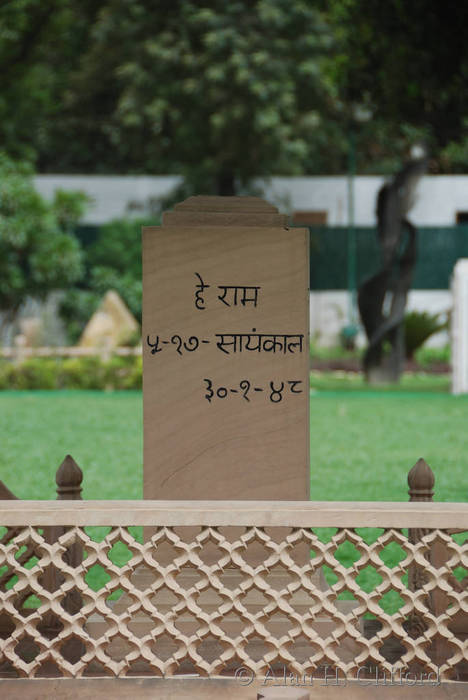 हे राम
५-१७-सायंकाल
३०-१-४८
© Alan H. Clifford